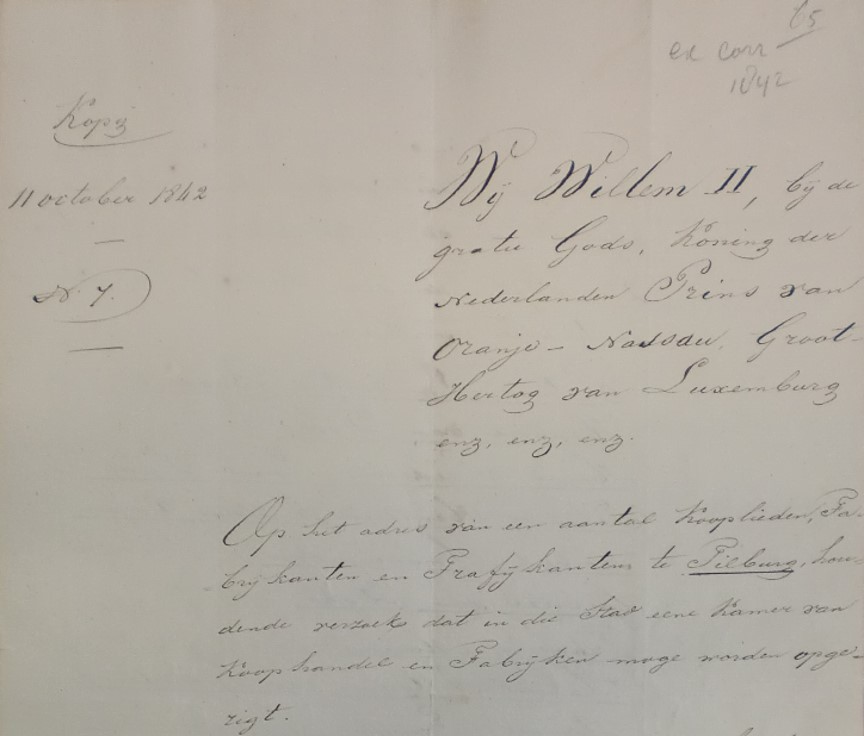 65
ex corr
1842
Kopij
11 october 1842
N. 7.
Wij Willem II, bij de
gratie Gods, Koning der
Nederlanden Prins van
Oranje - Nassau, Groot-
Hertog van Luxemburg
enz, enz, enz.
Op het adres van een aantal Kooplieden, Fa-
brijkanten en Trafijkanten te Tilburg, hou-
dende verzoek dat in die Stad eene Kamer van
Koophandel en Fabrijken moge worden opge-
rigt.